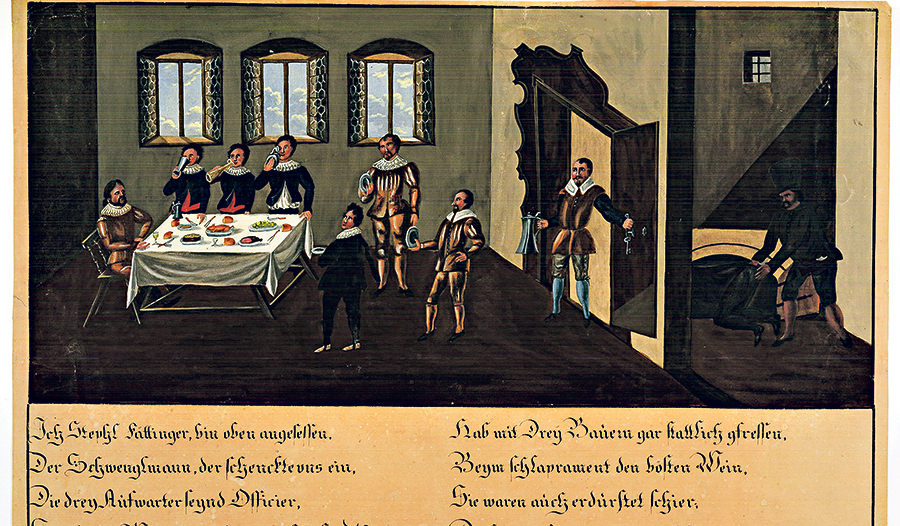 Ich Stephl Fättinger, bin oben angesessen.
Hab mit Drey Bauern gar stattlich gfressen,
Der Schwenglmann, der schenckte uns ein,
Beym schlaprament den bösten Wein,
Die drey Aufwarter seynd Officier,
Sie waren auch erdürstet schier;